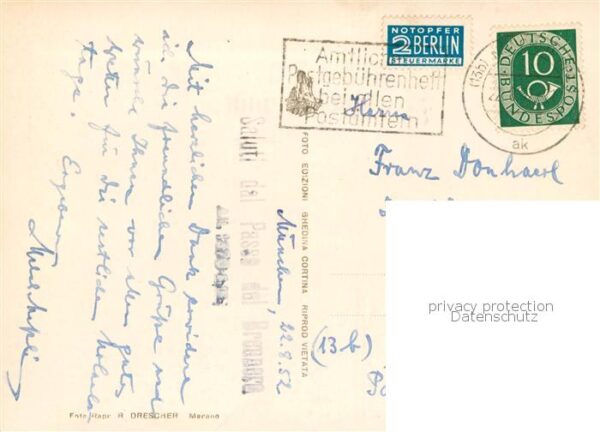 NOTOPFER
2 BERLIN
STEUERMARKE
DEUTSCHE BUNDESPOST
10
(13b)
ak
Amtliches
Postgebührenheft
bei allen
Postämtern
Herrn
Franz
München, 22.8.52
(13b)
Mit herzlichem Dank erwidere
ich die freundlichen Grüße und
wünsche Ihnen vor allem gutes
Wetter für die restlichen
tage!
Saluti dal Passo del Brennero
FOTO EDIZIONI GHEDINA CORTINA RIPROD VIETATA
Foto Repr. R. DRESCHER Merano
privacy protection
Datenschutz